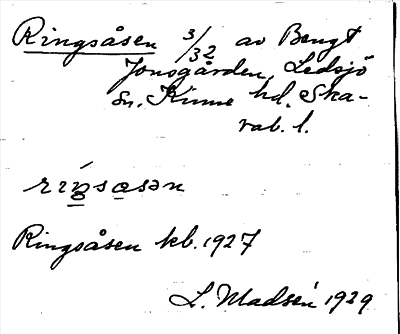 Ringsåsen 3/32 av Bengt
Jonsgården, Ledsjö
sn. Kinne hd. Ska-
rab. l.
ringsasən
Ringsåsen kb. 1927
L. Madsén 1929